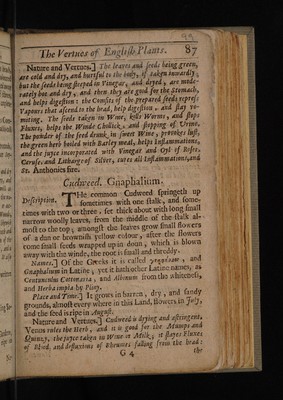 The Vertues of English Plants. 87
Nature and Vertues.] The leaves and seeds being green,
are cold and dry, and hurtful to the body, if taken inwardly;
but the seeds being steeped in Vinegar, and dryed, are mode-
rately hot and dry, and then they are good for the Stomach,
and helps digestion: the Comfits of the prepared seeds repress
Vapours that ascend to the head, help digestion, and stay vo-
miting. The seeds taken in Wine, kills Worms, and stops
Fluxes, helps the Winde Chollick, and stopping of Urine.
The powder of the seed drunk in sweet Wine, provokes lust,
the green herb boiled with Barley meal, helps Inflammations,
and the juyce incorporated with Vinegar and Oyl of Roses,
Ceruse, and Litharge of Silver, cures all Inflammations, and
St. Anthonies fire.
Cudweed. Gnaphalium.
Description. THe common Cudweed springeth up
sometimes with one stalk, and some-
times with two or three, set thick about with long small
narrow woolly leaves, from the middle of the stalk al-
most to the top; amongst the leaves grow small flowers
of a dun or brownish yellow colour, after the flowers
come small seeds wrapped up in doun, which is blown
away with the winde, the root is small and threddy.
Names.] Of the Greeks it is called
Gnaphalium in Latine; yet it hath other Latine names, as
Centunculus Cotonaria, and Albinum from the whiteness,
and Herba impia by Pliny.
Place and Time.] It grows in barren, dry, and sandy
grounds, almost every where in this Land, flowers in July,
and the seed is ripe in August.
Nature and Vertues.] Cudweed is drying and astringent,
Venus rules the Herb, and it is good for the Mumps and
Quinzy, the juyce taken in Wine or Milk; it stayes Fluxes
of Blood, and defluxions of Rheumes falling from the head:
G 4 the